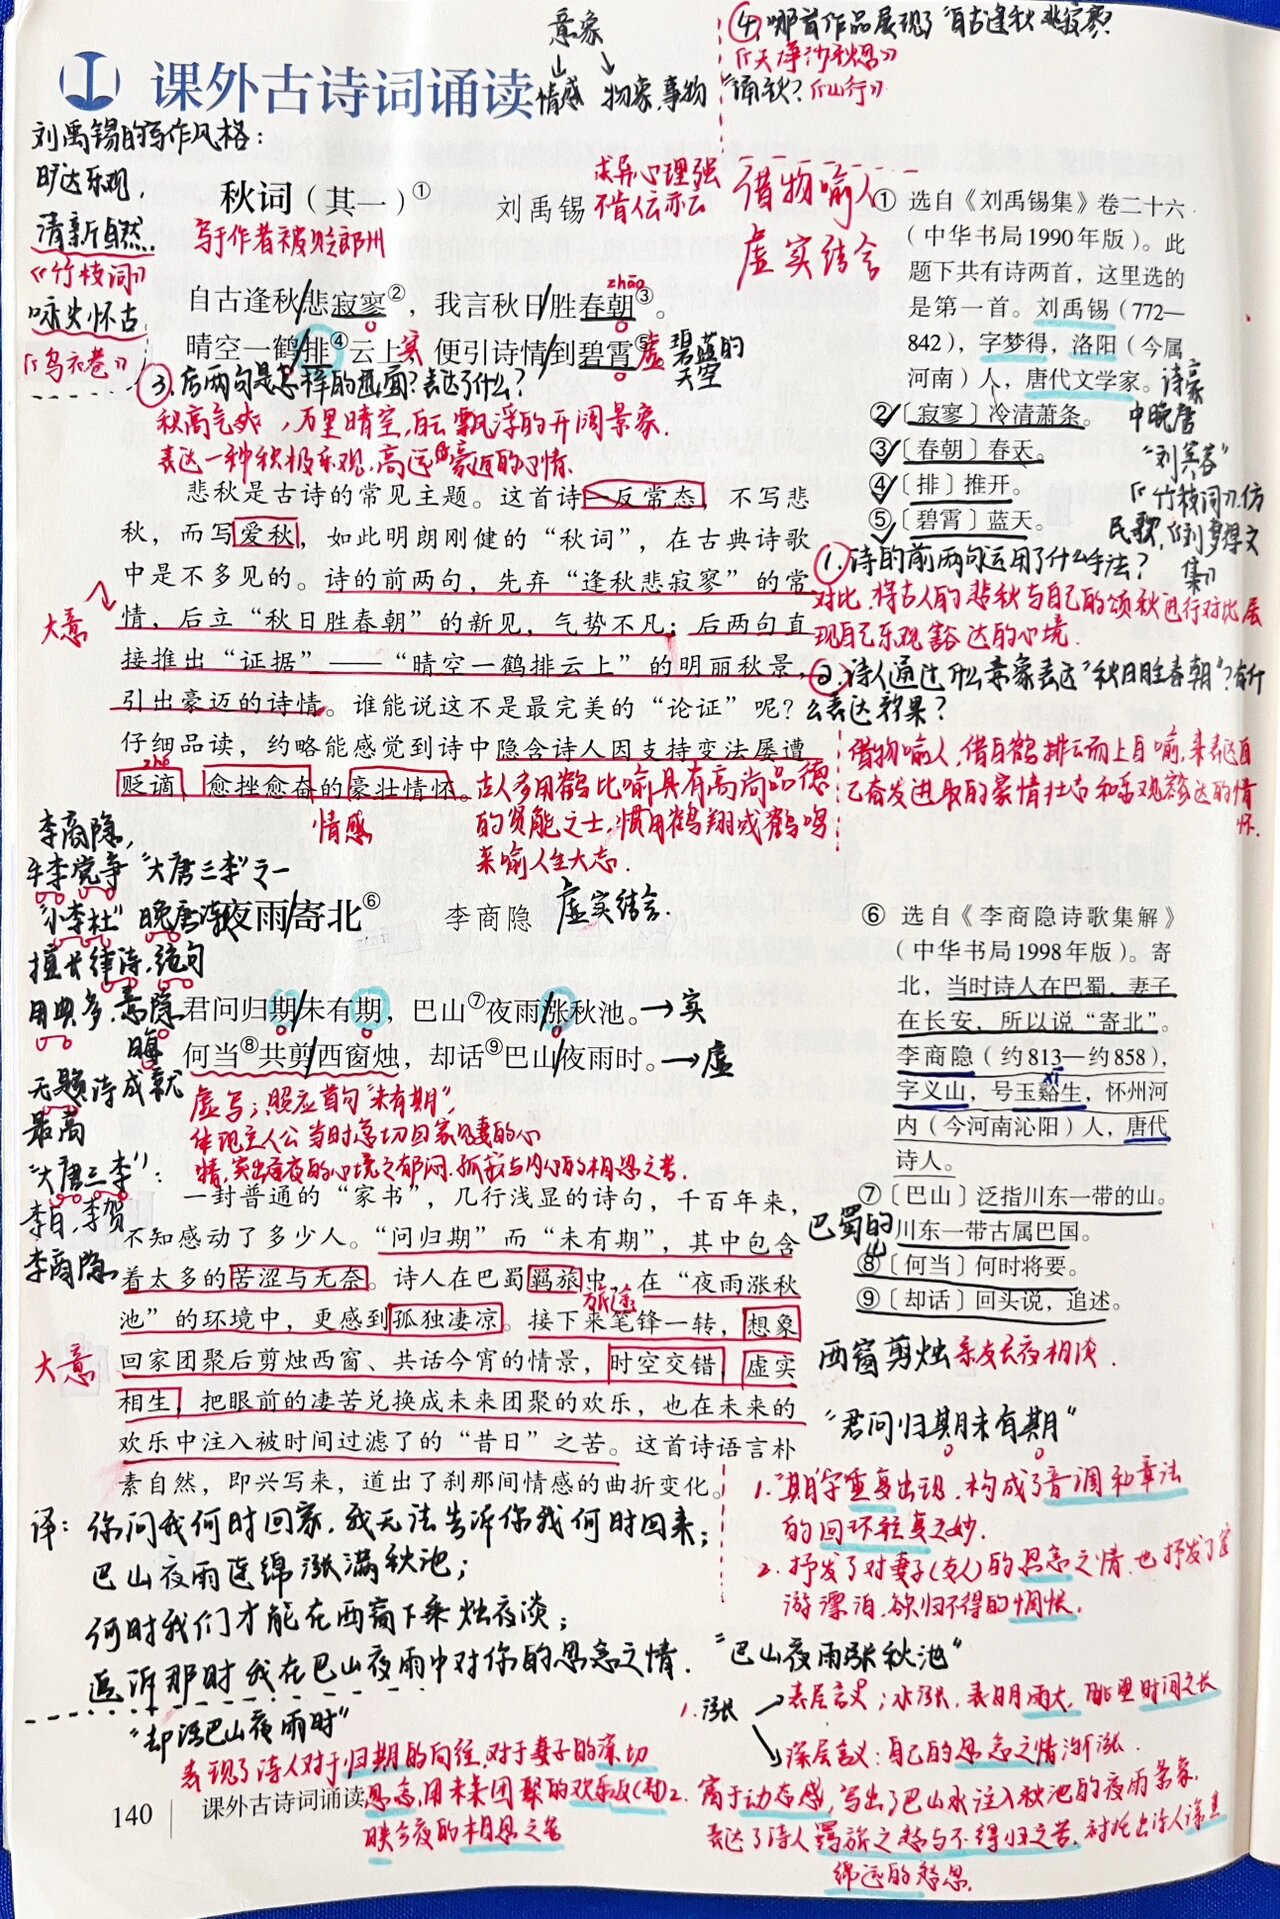 意象
情感 物象.事物
④.哪首作品展现了“自古逢秋悲寂寥”
《天净沙秋思》
诵秋?《山行》
课外古诗词诵读
刘禹锡的写作风格:
旷达乐观,
清新自然.
《竹枝词》
咏史怀古
《乌衣巷》
秋词(其一)①
刘禹锡
求异心理强
不肯人云亦云
借物喻人
虚实结合
写于作者被贬郎州
zhāo
自古逢秋/悲寂寥②,我言秋日/胜春朝③。
晴空一鹤/排④云上,便引诗情/到碧霄⑤。
实
虚
碧蓝的
天空
③.后两句是怎样的画面?表达了什么?
秋高气爽,万里晴空,白云飘浮的开阔景象.
表达一种积极乐观,高远豪迈的心情.
悲秋是古诗的常见主题。这首诗一反常态,不写悲
秋,而写爱秋,如此明朗刚健的“秋词”,在古典诗歌
中是不多见的。诗的前两句,先弃“逢秋悲寂寥”的常
情,后立“秋日胜春朝”的新见,气势不凡;后两句直
接推出“证据”——“晴空一鹤排云上”的明丽秋景,
引出豪迈的诗情。谁能说这不是最完美的“论证”呢?
仔细品读,约略能感觉到诗中隐含诗人因支持变法屡遭
zhé
贬谪、愈挫愈奋的豪壮情怀。
大意
情感
古人多用鹤比喻具有高尚品德
的贤能之士,惯用鹤翔或鹤鸣
来喻人生大志.
① 选自《刘禹锡集》卷二十六
(中华书局1990年版)。此
题下共有诗两首,这里选的
是第一首。刘禹锡(772—
842),字梦得,洛阳(今属
河南)人,唐代文学家。
诗豪
中晚唐
“刘宾客”
《竹枝词》.仿
民歌,《刘梦得文
集》
②〔寂寥〕冷清萧条。
③〔春朝〕春天。
④〔排〕推开。
⑤〔碧霄〕蓝天。
1.诗的前两句运用了什么手法?
对比.将古人的悲秋与自己的颂秋进行对比,展
现自己乐观豁达的心境.
2.诗人通过什么意象表达“秋日胜春朝”?有什
么表达效果?
借物喻人,借白鹤排云而上自喻,来表达自
己奋发进取的豪情壮志和乐观豁达的情
怀.
李商隐,
牛李党争“大唐三李”之一
“小李杜”晚唐诗
擅长律诗.绝句
用典多,意隐
晦
无题诗成就
最高
“大唐三李”:
李白,李贺
李商隐
夜雨/寄北⑥
李商隐
虚实结合.
君问归期/未有期,巴山⑦夜雨/涨秋池。→实
何当⑧共剪/西窗烛,却话⑨巴山/夜雨时。→虚
虚写;照应首句“未有期”,
体现主人公当时急切回家见妻的心
情,突出今夜的心境之郁闷.孤寂与内心的相思之苦.
一封普通的“家书”,几行浅显的诗句,千百年来,
不知感动了多少人。“问归期”而“未有期”,其中包含
着太多的苦涩与无奈。诗人在巴蜀羁旅中,在“夜雨涨秋
旅途
池”的环境中,更感到孤独凄凉。接下来笔锋一转,想象
回家团聚后剪烛西窗、共话今宵的情景,时空交错,虚实
相生,把眼前的凄苦兑换成未来团聚的欢乐,也在未来的
欢乐中注入被时间过滤了的“昔日”之苦。这首诗语言朴
素自然,即兴写来,道出了刹那间情感的曲折变化。
大意
⑥ 选自《李商隐诗歌集解》
(中华书局1998年版)。寄
北,当时诗人在巴蜀,妻子
在长安,所以说“寄北”。
李商隐(约813—约858),
xī
字义山,号玉谿生,怀州河
内(今河南沁阳)人,唐代
诗人。
⑦〔巴山〕泛指川东一带的山。
川东一带古属巴国。
巴蜀的
山
⑧〔何当〕何时将要。
⑨〔却话〕回头说,追述。
西窗剪烛 亲友长夜相谈.
“君问归期未有期”
1.“期”字重复出现,构成了音调和章法
的回环往复之妙.
2.抒发了对妻子(友人)的思念之情.也抒发了宦
游漂泊,欲归不得的惆怅.
译:你问我何时回家,我无法告诉你我何时回来;
巴山夜雨连绵涨满秋池;
何时我们才能在西窗下秉烛夜谈;
追诉那时我在巴山夜雨中对你的思念之情.
“巴山夜雨涨秋池”
1.涨
表层含义;水涨.表明雨大,时间之长
深层含义:自己的思念之情渐涨.
2.富于动态感,写出了巴山水注入秋池的夜雨景象.
表达了诗人羁旅之愁与不得归之苦.衬托出诗人深且
绵远的愁思.
“却话巴山夜雨时”
表现了诗人对于归期的向往.对于妻子的深切
思念,用未来团聚的欢乐反(衬)
映今夜的相思之苦
140 课外古诗词诵读